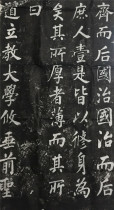 齊而后國治國治而后
庶人壹是皆以修身為
矣其所厚者薄而其所
曰
道立教大學攸垂前聖